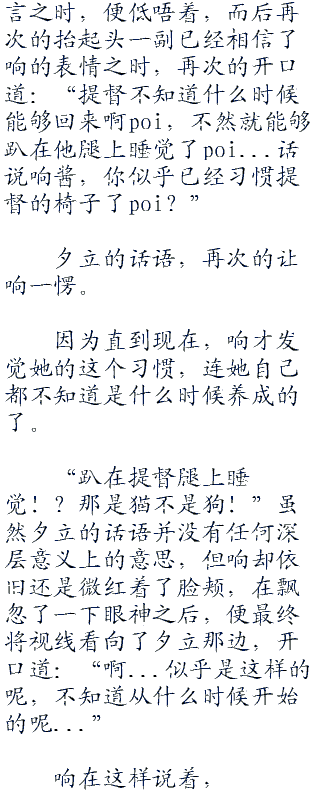 言之时，便低唔着，而后再
次的抬起头一副已经相信了
响的表情之时，再次的开口
道：“提督不知道什么时候
能够回来啊poi，不然就能够
趴在他腿上睡觉了poi...话
说响酱，你似乎已经习惯提
督的椅子了poi？”
夕立的话语，再次的让
响一愣。
因为直到现在，响才发
觉她的这个习惯，连她自己
都不知道是什么时候养成的
了。
“趴在提督腿上睡
觉！？那是猫不是狗！”虽
然夕立的话语并没有任何深
层意义上的意思，但响却依
旧还是微红着了脸颊，在飘
忽了一下眼神之后，便最终
将视线看向了夕立那边，开
口道：“啊...似乎是这样的
呢，不知道从什么时候开始
的呢...”
响在这样说着，